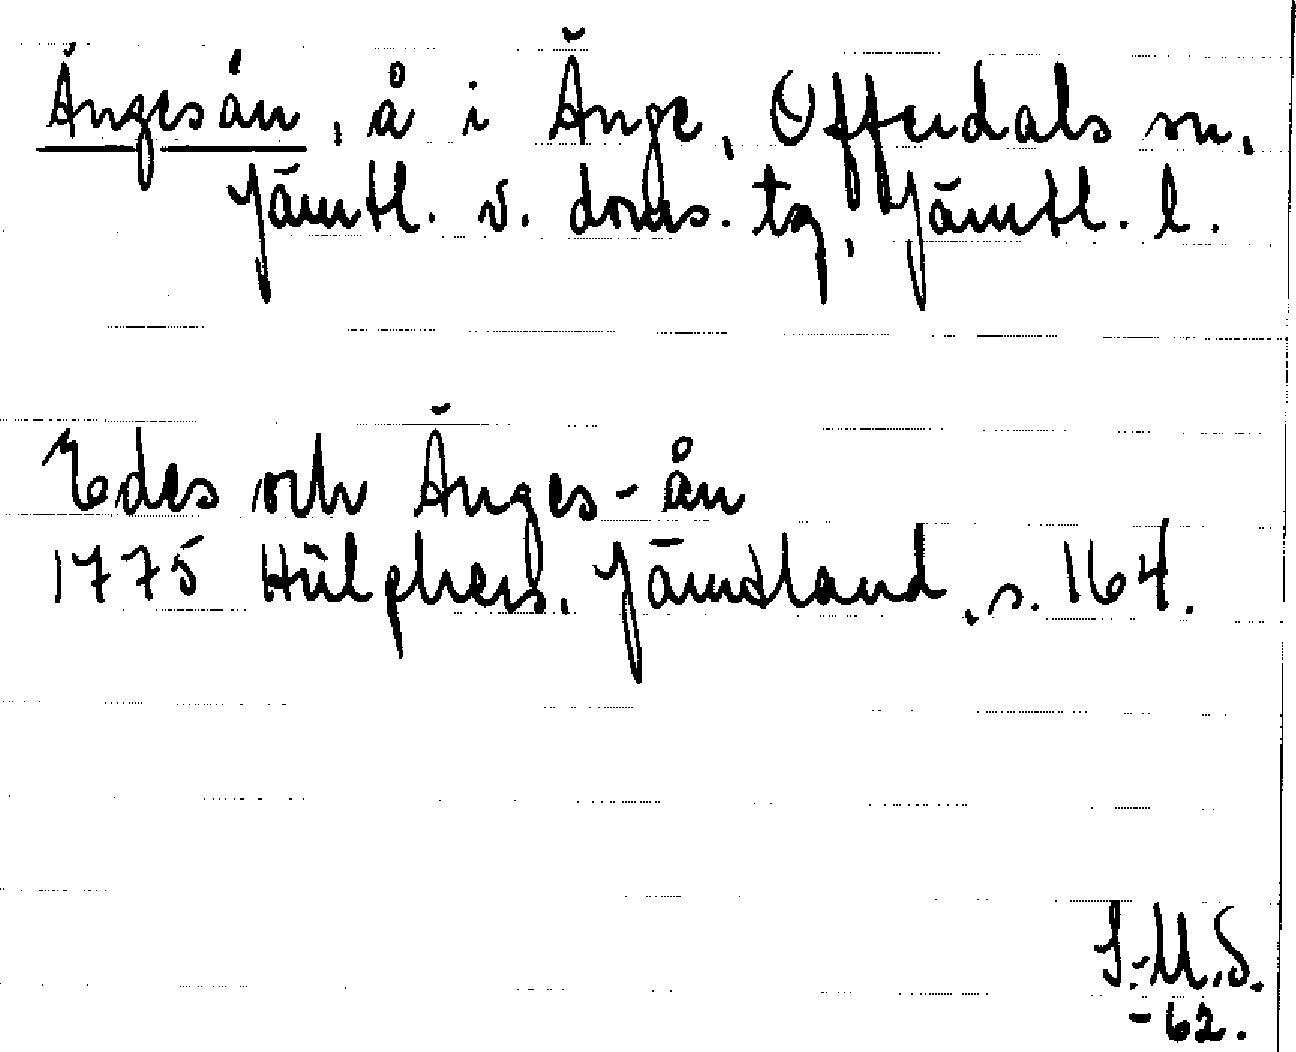 Ängesån, å i Änge, Offerdals sn,
Jämtl. v. doms. tg, Jämtl. l.
Edes och Änges-ån
1775 Hülphers, Jämtland, s. 164.
I.-M.S.
-62.